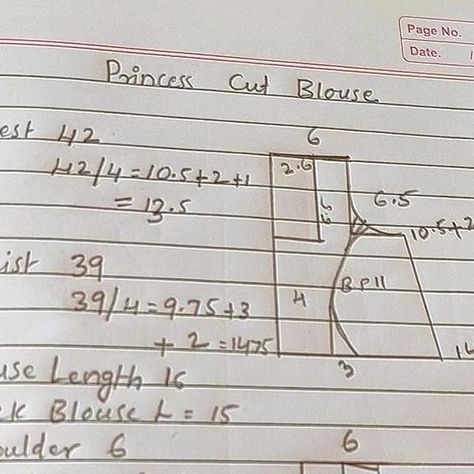 Page No.
Date.
Princess Cut Blouse
est 42
42/4 = 10.5+2+1
= 13.5
ist 39
39/4 = 9.75+3
+ 2 = 1475
use Length 16
ck Blouse L = 15
oulder 6
6
2.6
6.5
10.5+2
4
BP11
14
3
6